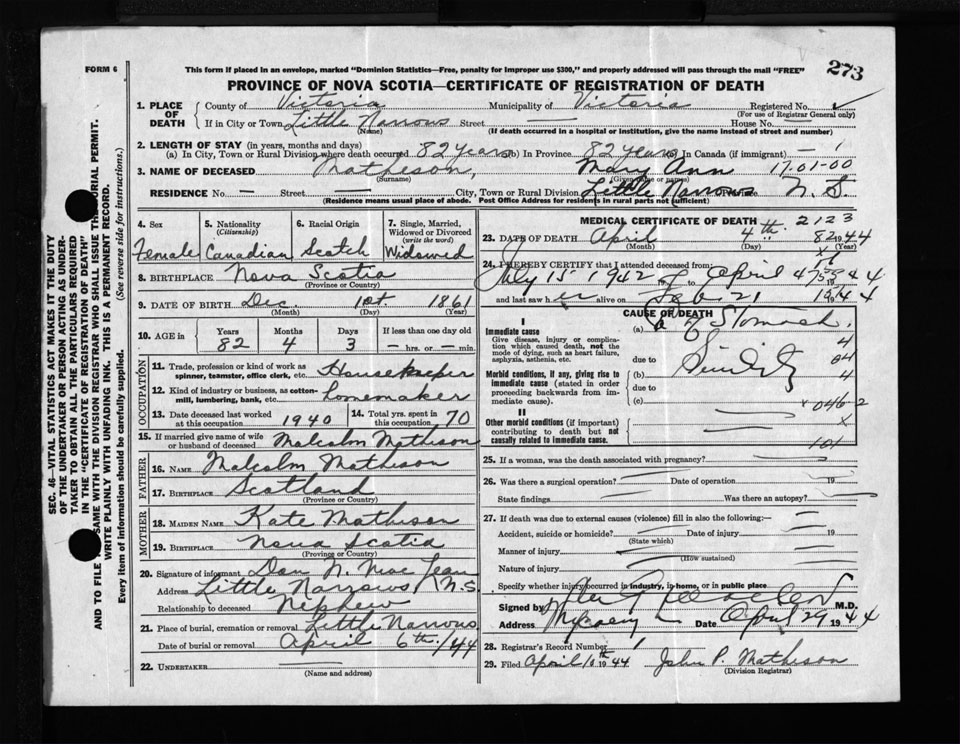 FORM 6
This form if placed in an envelope, marked "Dominion Statistics—Free, penalty for improper use $300," and properly addressed will pass through the mail "FREE"
273
PROVINCE OF NOVA SCOTIA—CERTIFICATE OF REGISTRATION OF DEATH
SEC. 46—VITAL STATISTICS ACT MAKES IT THE DUTY
OF THE UNDERTAKER OR PERSON ACTING AS UNDER-
TAKER TO OBTAIN ALL THE PARTICULARS REQUIRED
IN THE "CERTIFICATE OF REGISTRATION OF DEATH"
AND TO FILE SAME WITH THE DIVISION REGISTRAR WHO SHALL ISSUE THE BURIAL PERMIT.
WRITE PLAINLY WITH UNFADING INK. THIS IS A PERMANENT RECORD.
Every item of information should be carefully supplied. (See reverse side for instructions.)
1. PLACE OF DEATH
County of Victoria Municipality of Victoria Registered No.
(For use of Registrar General only)
If in City or Town Little Narrows Street — House No. —
(Name) (If death occurred in a hospital or institution, give the name instead of street and number)
2. LENGTH OF STAY (in years, months and days)
(a) In City, Town or Rural Division where death occurred 82 years (b) In Province 82 years (c) In Canada (if immigrant) —
3. NAME OF DECEASED Matheson, Mary Ann 17.01-00
(Surname) (Given name or names)
RESIDENCE No. — Street — City, Town or Rural Division Little Narrows Province N. S.
(Residence means usual place of abode. Post Office Address for residents in rural parts not sufficient)
4. Sex
Female
5. Nationality
(Citizenship)
Canadian
6. Racial Origin
Scotch
7. Single, Married,
Widowed or Divorced
(write the word)
Widowed
8. BIRTHPLACE Nova Scotia
(Province or Country)
9. DATE OF BIRTH Dec. 1st 1861
(Month) (Day) (Year)
10. AGE in
Years Months Days If less than one day old
82 4 3 — hrs. or — min.
OCCUPATION
11. Trade, profession or kind of work as
spinner, teamster, office clerk, etc. Housekeeper
12. Kind of industry or business, as cotton-
mill, lumbering, bank, etc. Homemaker
13. Date deceased last worked
at this occupation 1940
14. Total yrs. spent in
this occupation 70
15. If married give name of wife
or husband of deceased Malcolm Matheson
FATHER
16. NAME Malcolm Matheson
17. BIRTHPLACE Scotland
(Province or Country)
MOTHER
18. MAIDEN NAME Kate Matheson
19. BIRTHPLACE Nova Scotia
(Province or Country)
20. Signature of informant Dan N. MacLean
Address Little Narrows N.S.
Relationship to deceased Nephew
21. Place of burial, cremation or removal Little Narrows
Date of burial or removal April 6th /44
22. UNDERTAKER —
(Name and address)
MEDICAL CERTIFICATE OF DEATH 2123
23. DATE OF DEATH April 4th 1944
(Month) (Day) (Year)
82
24. I HEREBY CERTIFY that I attended deceased from:
July 15 1942 to April 4 1944
and last saw her alive on Feb 21 1944
CAUSE OF DEATH
I
Immediate cause
Give disease, injury or complica-
tion which caused death, not the
mode of dying, such as heart failure,
asphyxia, asthenia, etc.
(a) Ca of Stomach
due to
Morbid conditions, if any, giving rise to
immediate cause (stated in order
proceeding backwards from im-
mediate cause).
(b) Senility
due to
(c)
046-2
II
Other morbid conditions (if important)
contributing to death but not
causally related to immediate cause.
101
25. If a woman, was the death associated with pregnancy?
26. Was there a surgical operation? Date of operation 19
State findings Was there an autopsy?
27. If death was due to external causes (violence) fill in also the following:—
Accident, suicide or homicide? Date of injury 19
(State which)
Manner of injury
(How sustained)
Nature of injury
Specify whether injury occurred in industry, in home, or in public place
Signed by M.D.
Address Date April 29 1944
28. Registrar's Record Number 1
29. Filed April 10th 1944 John P. Matheson
(Division Registrar)